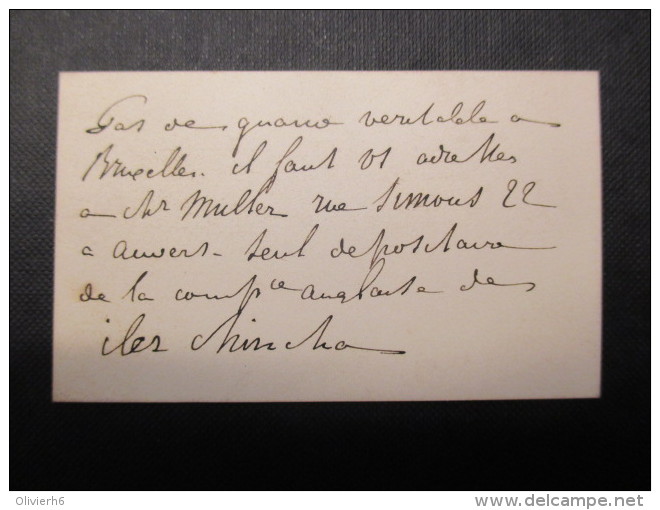 Pas de guano veritable a
Bruxelles. il faut vs adresser
a Mr Muller rue Simons 22
a Anvers - seul depositaire
de la compie anglaise des
iles Chincha
Olivierh6
delcampe.net